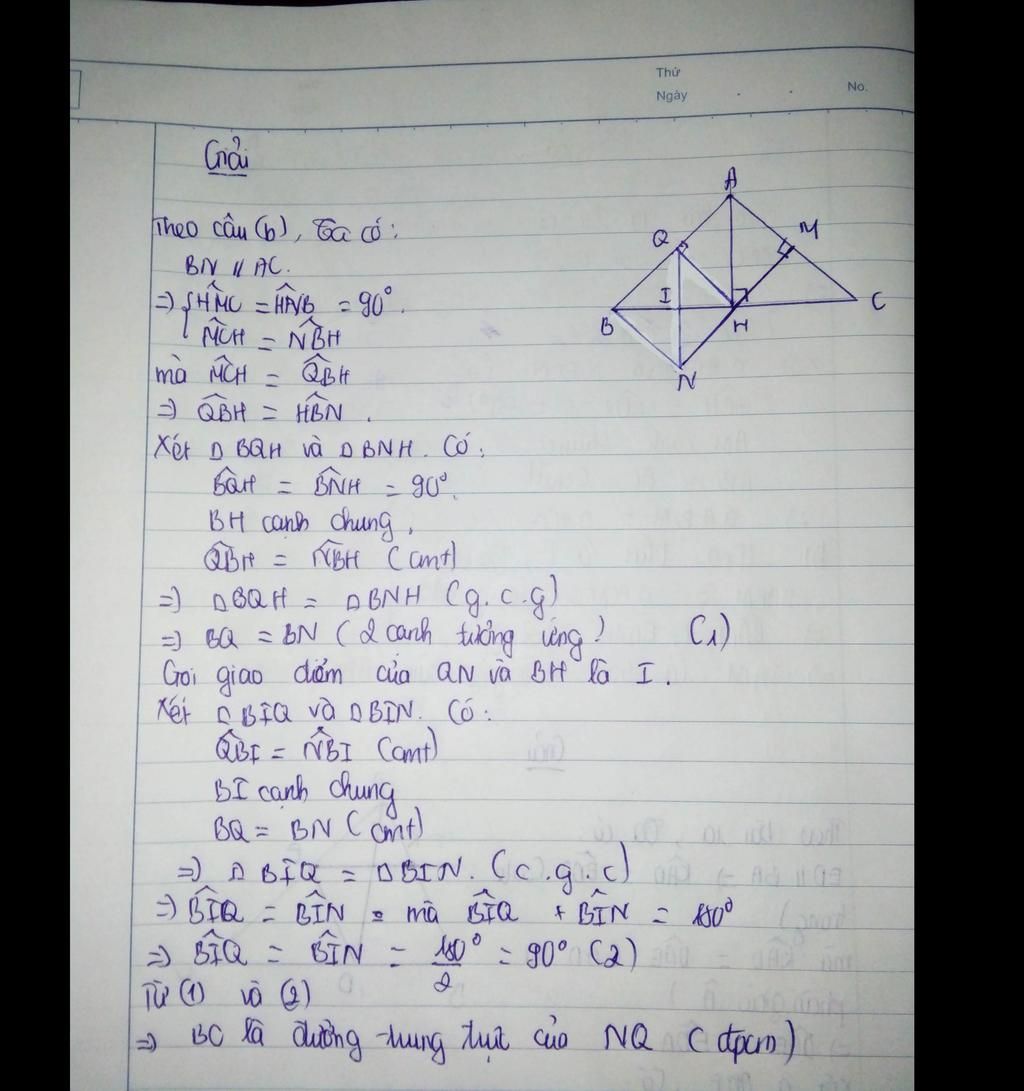 Thứ
Ngày . . No.
Giải
Theo câu (b), Ta có:
BN // AC.
=> { HM̂C = HN̂B = 90°.
MĈH = NB̂H
mà MĈH = QB̂H
=> QB̂H = HB̂N.
Xét △BQH và △BNH. Có:
BQ̂H = BN̂H = 90°.
BH cạnh chung,
QB̂H = NB̂H (cmt)
=> △BQH = △BNH (g.c.g)
=> BQ = BN (2 cạnh tương ứng) (1)
Gọi giao điểm của QN và BH là I.
Xét △BIQ và △BIN. Có:
QB̂I = NB̂I (cmt)
BI cạnh chung
BQ = BN (cmt)
=> △BIQ = △BIN. (c.g.c)
=> BÎQ = BÎN mà BÎQ + BÎN = 180°
=> BÎQ = BÎN = 180°/2 = 90° (2)
Từ (1) và (2)
=> BC là đường trung trực của NQ (đpcm)
A
Q
M
I
B
H
C
N